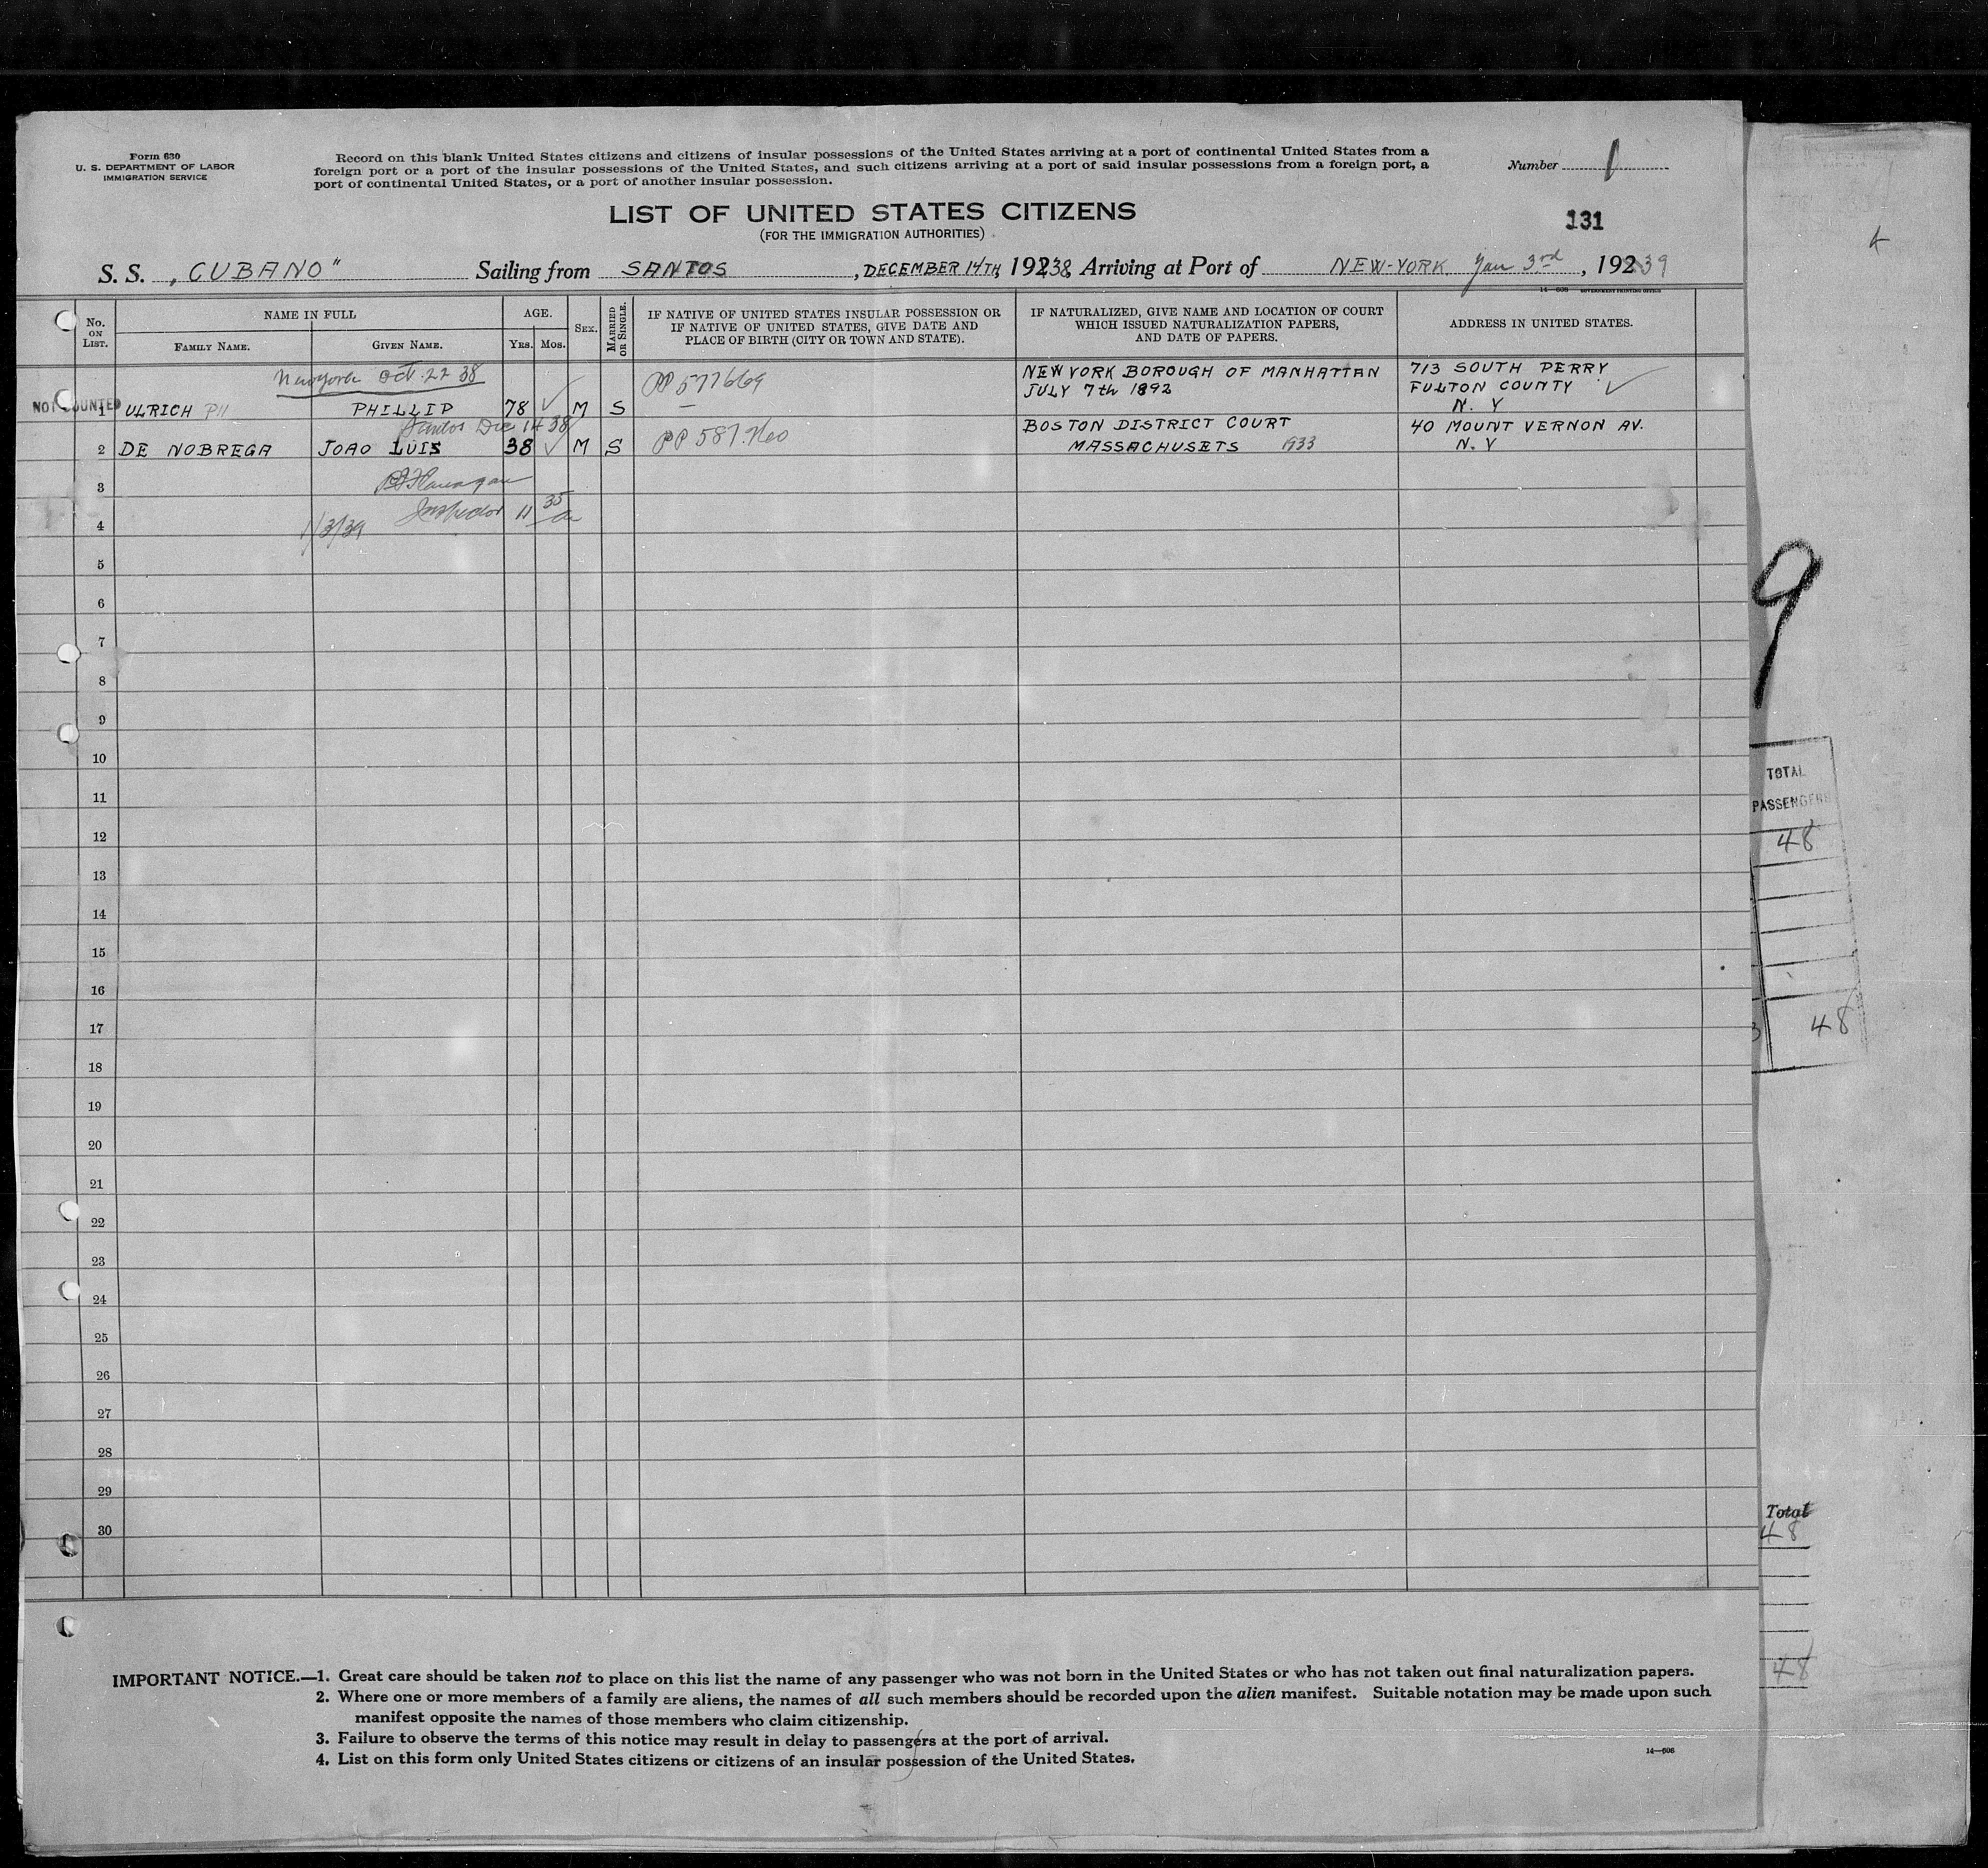 Form 630
U. S. DEPARTMENT OF LABOR
IMMIGRATION SERVICE
Record on this blank United States citizens and citizens of insular possessions of the United States arriving at a port of continental United States from a
foreign port or a port of the insular possessions of the United States, and such citizens arriving at a port of said insular possessions from a foreign port, a
port of continental United States, or a port of another insular possession.
Number 1
LIST OF UNITED STATES CITIZENS
(FOR THE IMMIGRATION AUTHORITIES)
131
S. S. „CUBANO" Sailing from SANTOS, DECEMBER 14TH, 19238, Arriving at Port of NEW-YORK Jan 3rd, 19239
14—608 GOVERNMENT PRINTING OFFICE
No. ON LIST.
NAME IN FULL
FAMILY NAME.
GIVEN NAME.
AGE.
YRS. MOS.
SEX.
MARRIED OR SINGLE.
IF NATIVE OF UNITED STATES INSULAR POSSESSION OR
IF NATIVE OF UNITED STATES, GIVE DATE AND
PLACE OF BIRTH (CITY OR TOWN AND STATE).
IF NATURALIZED, GIVE NAME AND LOCATION OF COURT
WHICH ISSUED NATURALIZATION PAPERS,
AND DATE OF PAPERS.
ADDRESS IN UNITED STATES.
New York Oct. 22 38
NOT COUNTED
1 ULRICH PH PHILLIP 78 M S PP 577669
NEW YORK BOROUGH OF MANHATTAN
JULY 7th 1892
713 SOUTH PERRY
FULTON COUNTY
N. Y
Santos Dec 14 38
2 DE NOBREGA JOAO LUIS 38 M S PP 587.
BOSTON DISTRICT COURT
MASSACHUSETS 1933
40 MOUNT VERNON AV.
N. Y
3
Flanagan
Inspector 11 35
4 1/3/39
5
6
7
8
9
10
11
12
13
14
15
16
17
18
19
20
21
22
23
24
25
26
27
28
29
30
IMPORTANT NOTICE.—1. Great care should be taken not to place on this list the name of any passenger who was not born in the United States or who has not taken out final naturalization papers.
2. Where one or more members of a family are aliens, the names of all such members should be recorded upon the alien manifest. Suitable notation may be made upon such
manifest opposite the names of those members who claim citizenship.
3. Failure to observe the terms of this notice may result in delay to passengers at the port of arrival.
4. List on this form only United States citizens or citizens of an insular possession of the United States.
14—608
9
TOTAL
PASSENGERS
48
48
Total
48
48